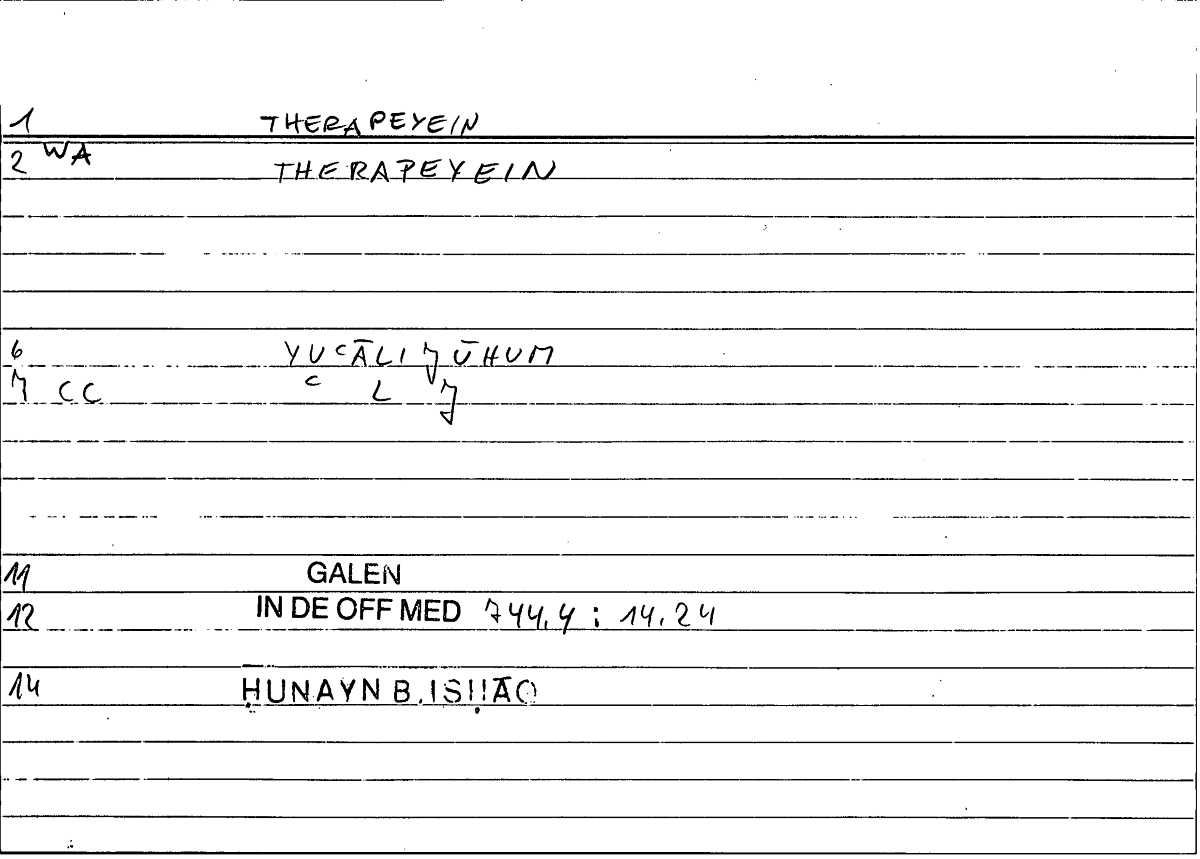 1 THERAPEYEIN
2 WA THERAPEYEIN
6 YUᶜĀLIJŪHUM
7 CC ᶜ L J
11 GALEN
12 IN DE OFF MED 744,4 : 14.24
14 ḤUNAYN B. ISḤĀQ